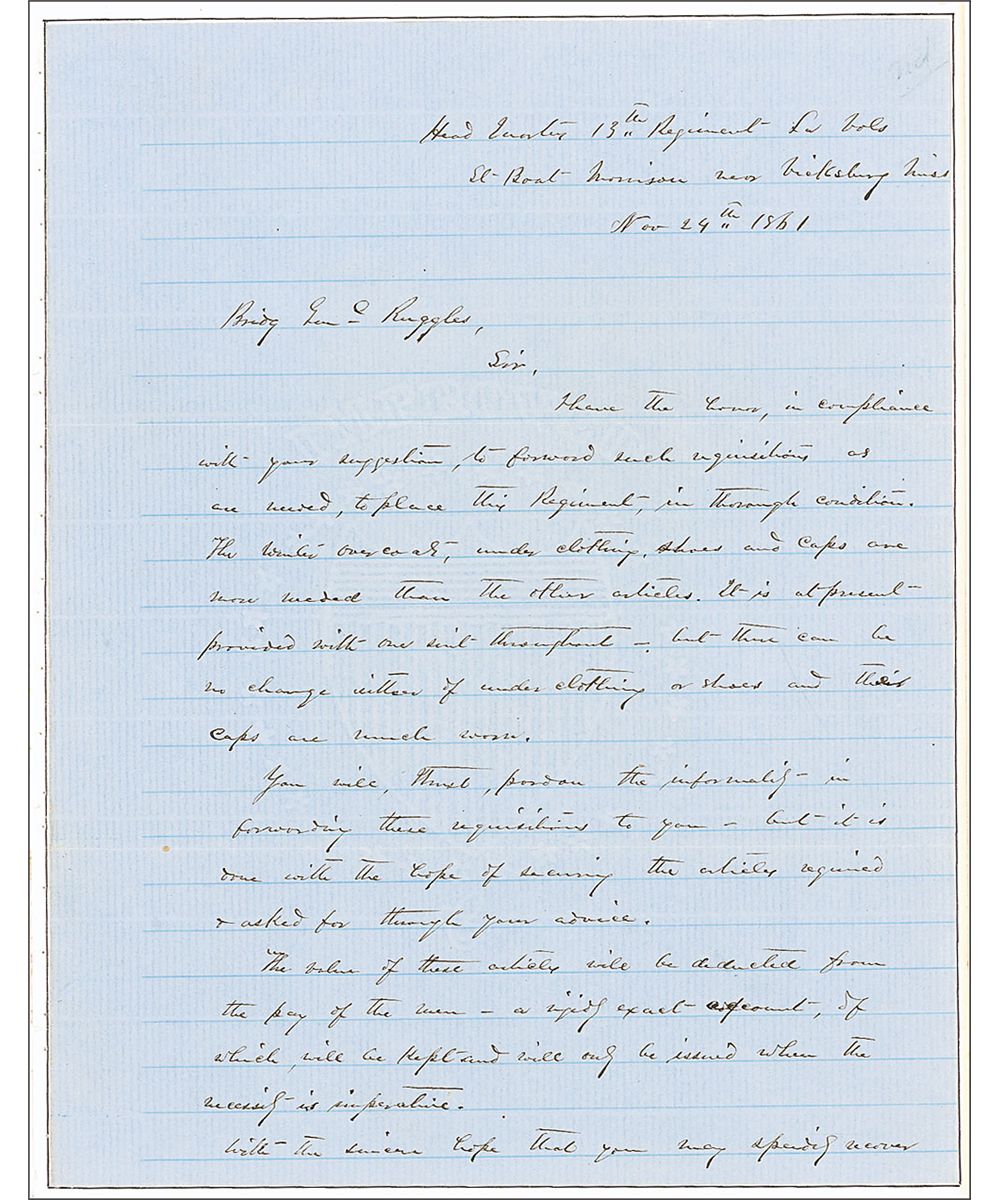 Head Quarters 13th Regiment La Vols
St. Boat Morrison near Vicksburg Miss
Nov 24th 1861
Bridg Genl Ruggles,
Sir,
I have the honor, in compliance
with your suggestion, to forward such requisitions as
are needed, to place this Regiment, in thorough condition.
The winter overcoats, under clothing, shoes and caps are
more needed than the other articles. It is at present
provided with one suit throughout - but there can be
no change either of under clothing or shoes and their
caps are much worn.
You will, I trust, pardon the informality in
forwarding these requisitions to you - but it is
done with the hope of securing the articles required
& asked for through your advice.
The value of these articles will be deducted from
the pay of the men - a rigidly exact account, of
which, will be kept and will only be issued when the
necessity is imperative.
With the sincere hope that you may speedily recover